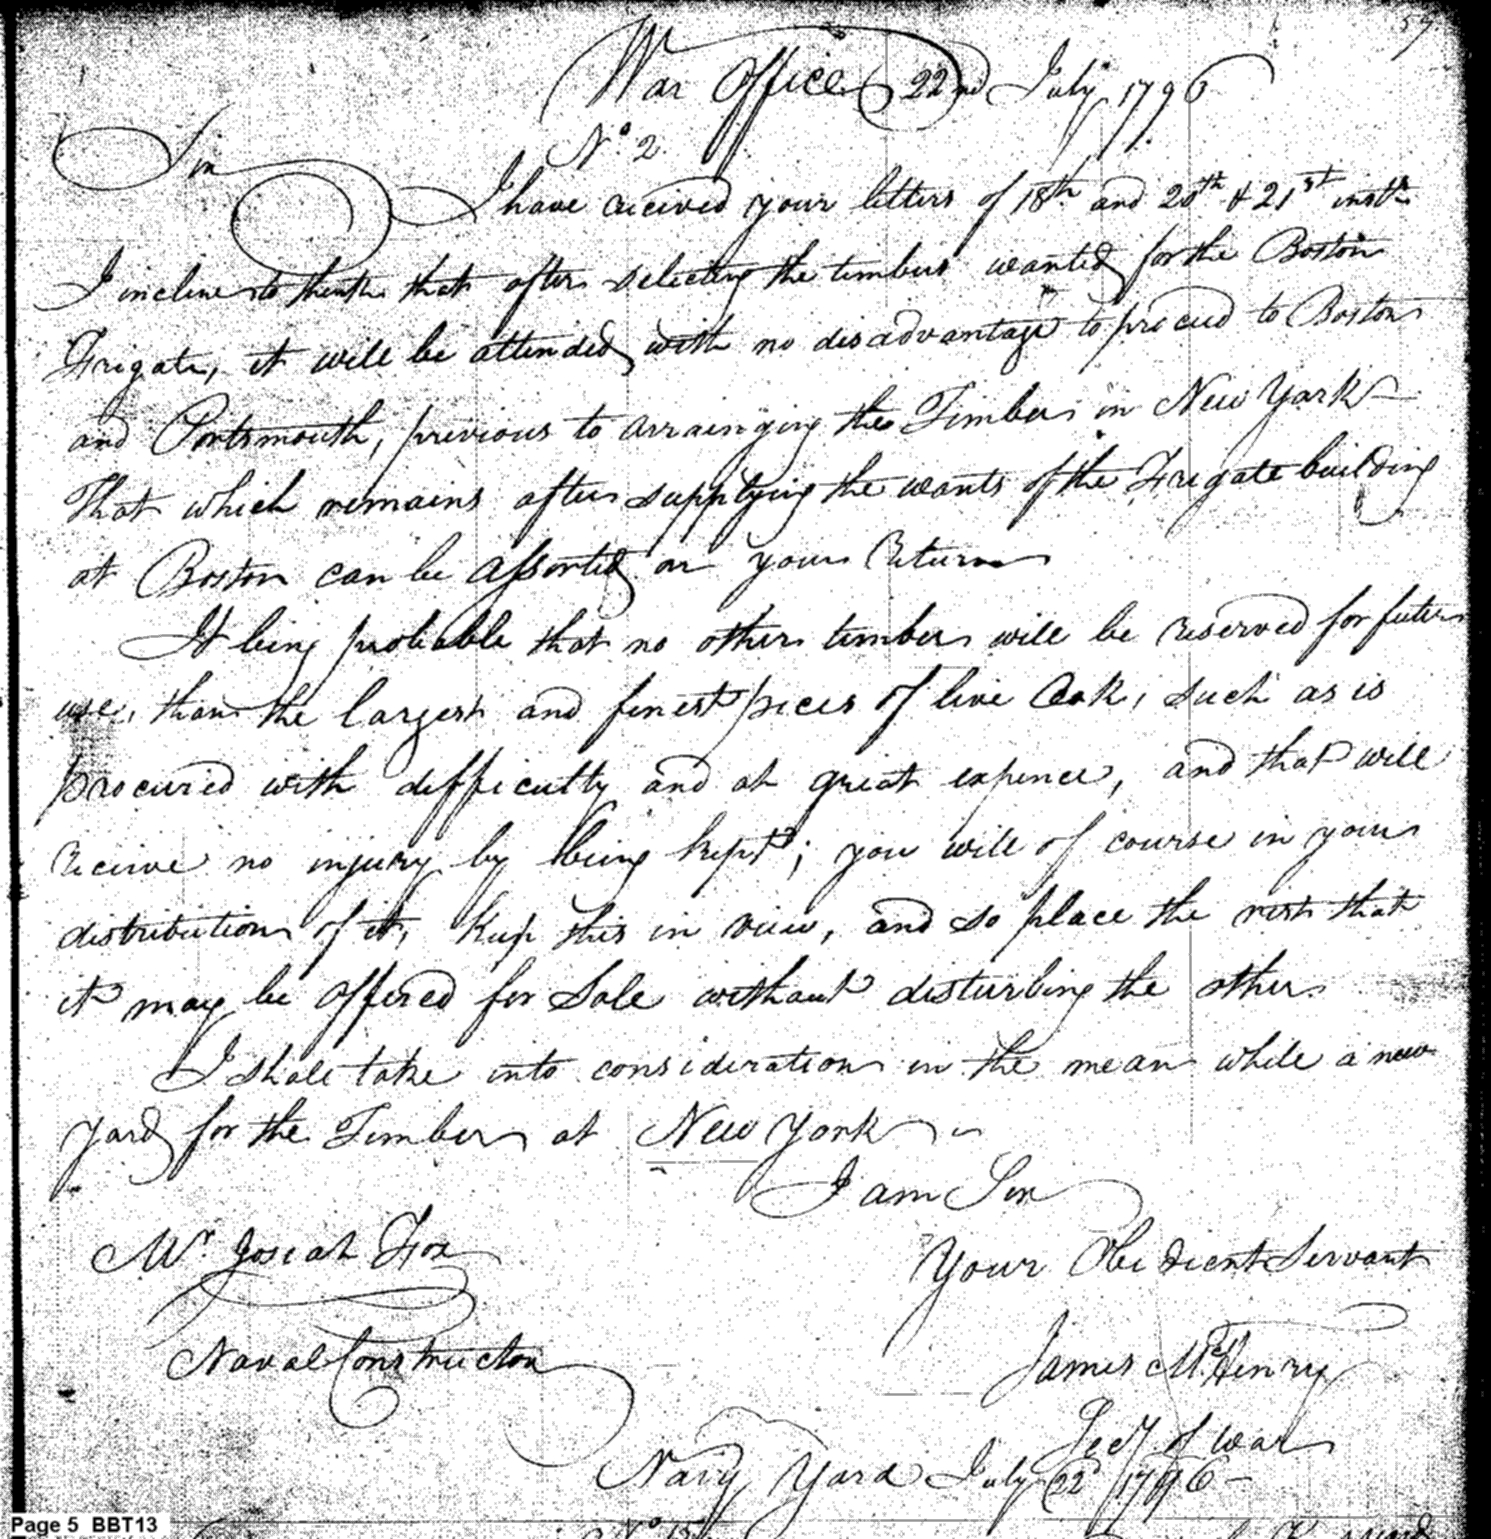 59
War Office 22nd July 1796
No. 2.
Sir
I have received your letters of 18th and 20th & 21st instt.
I incline to think that after selecting the timbers wanted for the Boston
Frigate, it will be attended with no disadvantage to proceed to Boston
and Portsmouth, previous to arrainging the Timber in New York
That which remains after supplying the wants of the Frigate building
at Boston can be assorted on your return
It being probable that no other timber will be reserved for future
use, than the largest and finest pieces of live Oak, such as is
procured with difficulty and at great expence, and that will
receive no injury by being kept; you will of course in your
distribution of it, keep this in view, and so place the rest that
it may be offered for Sale without disturbing the other.
I shall take into consideration in the mean while a new
yard for the Timber at New York
I am Sir
Mr. Josiah Fox
Your Obedient Servant
Naval Constructor
James McHenry
Secy of War
Navy Yard July 22d 1796
No 15
Page 5 BBT13